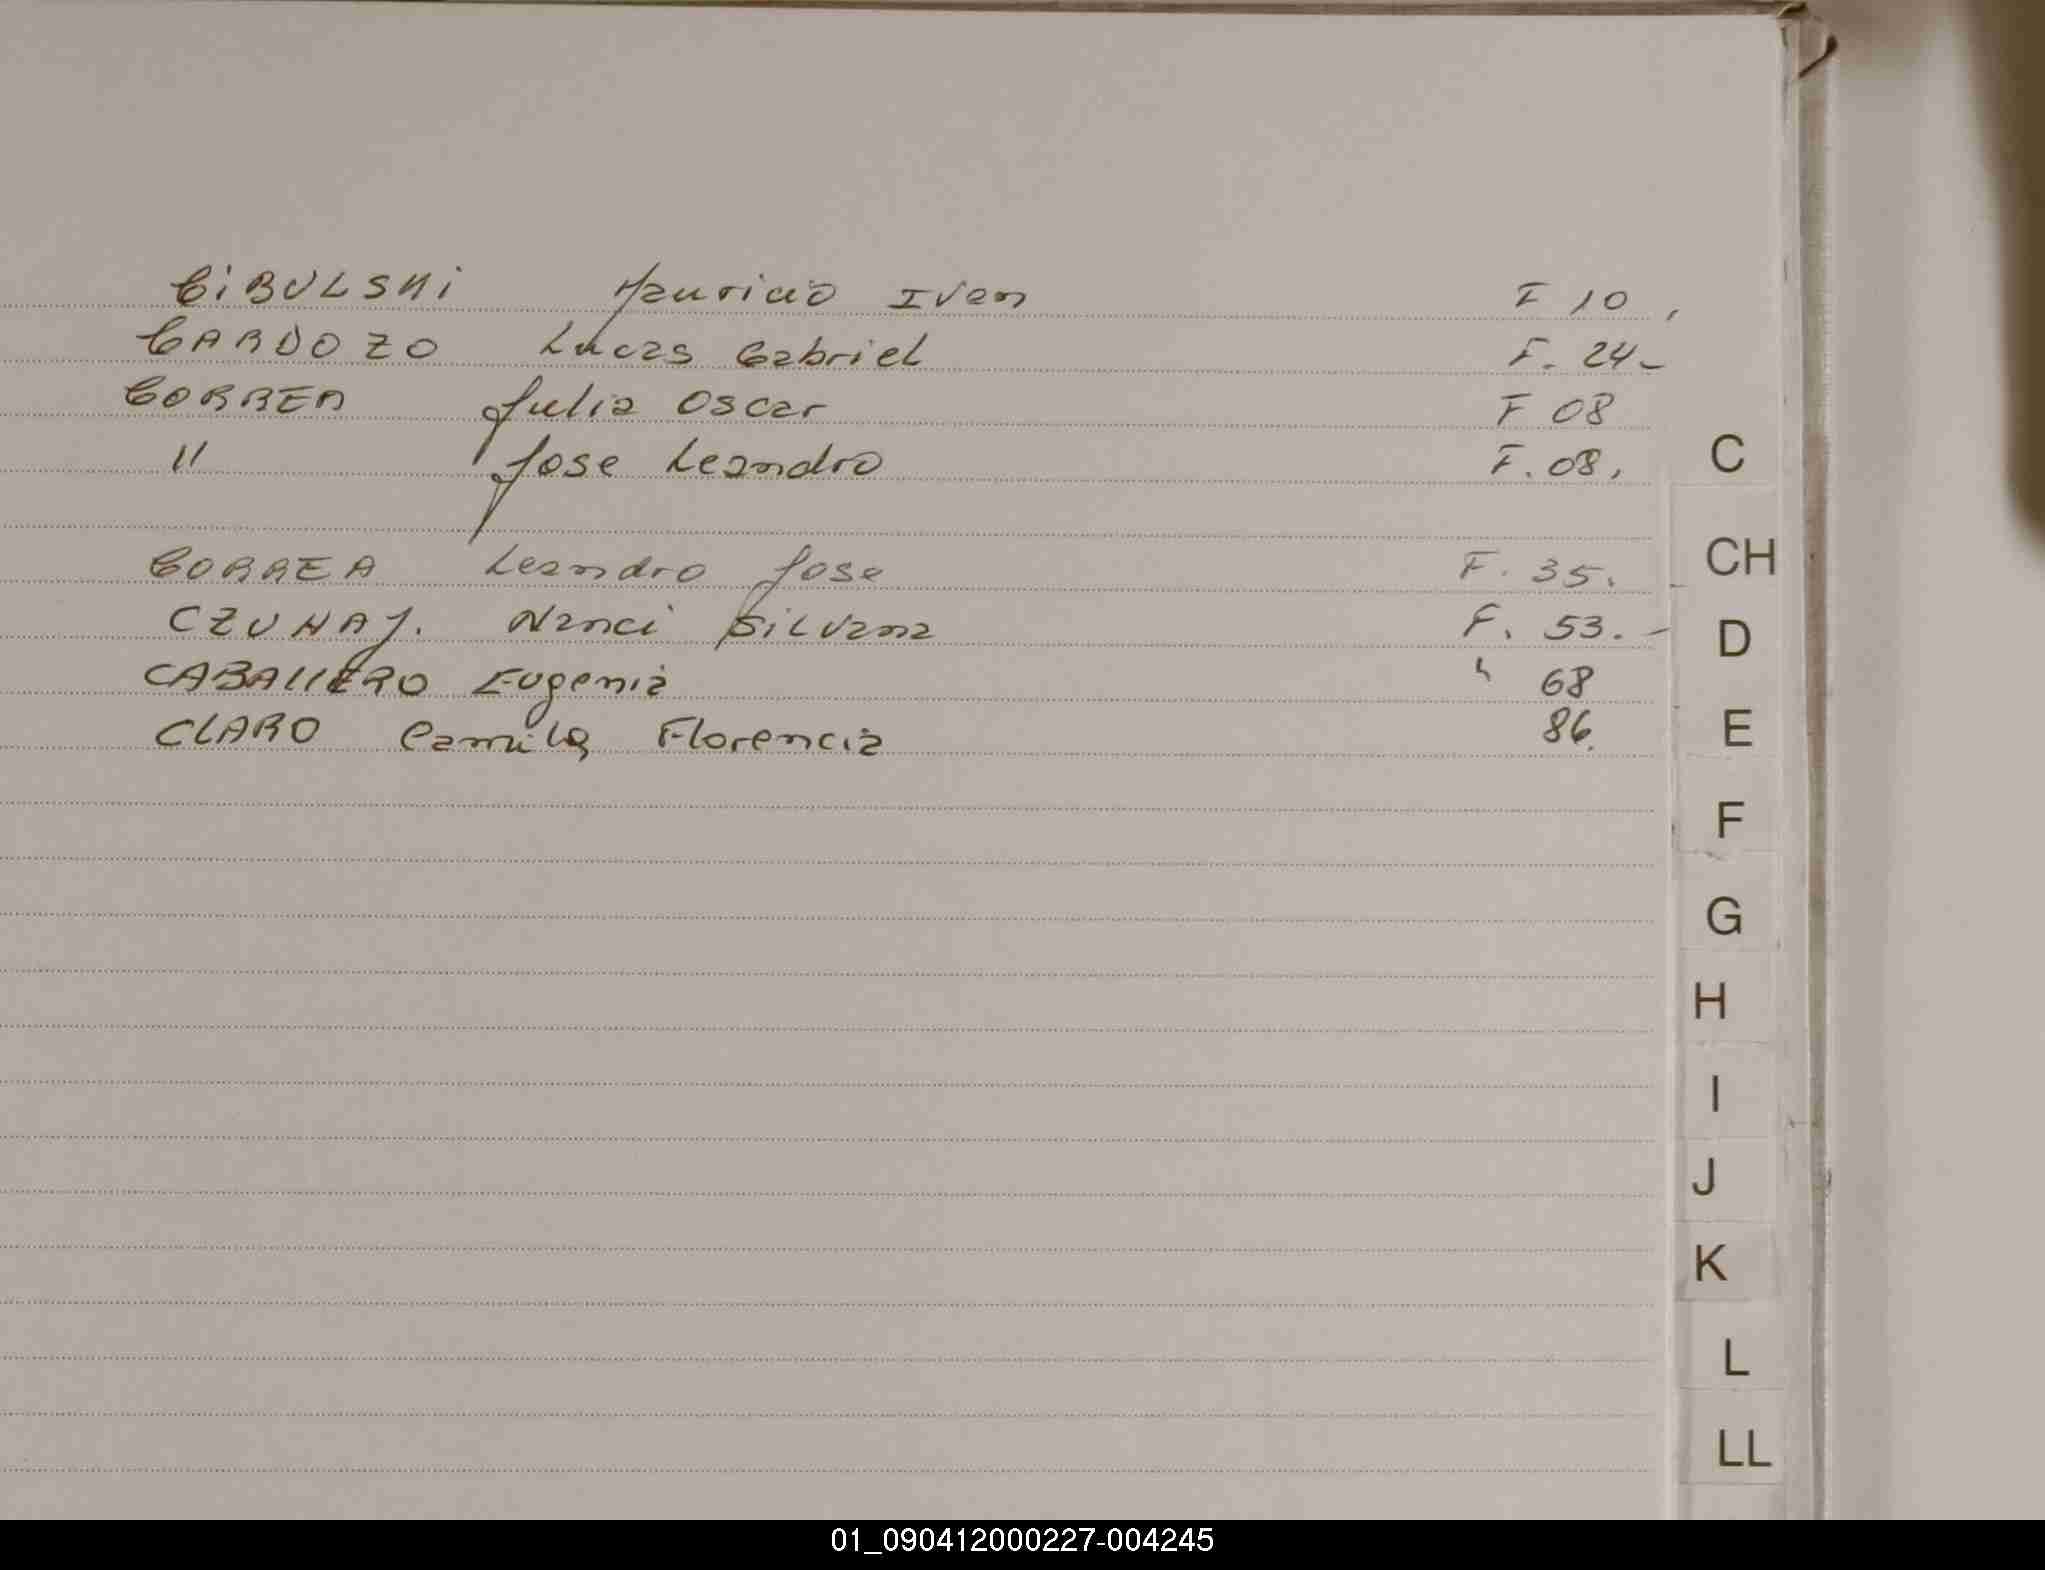 CIBULSKI Mauricio Ivan F 10,
CARDOZO Lucas Gabriel F. 24-
CORREA Julia Oscar F 08
" Jose Leandro F. 08,
CORREA Leandro Jose F. 35.
CZUHAJ. Nanci Silvana F. 53.-
CABAllERO Eugenia " 68
CLARO Camila Florencia 86.
C
CH
D
E
F
G
H
I
J
K
L
LL
01_090412000227-004245